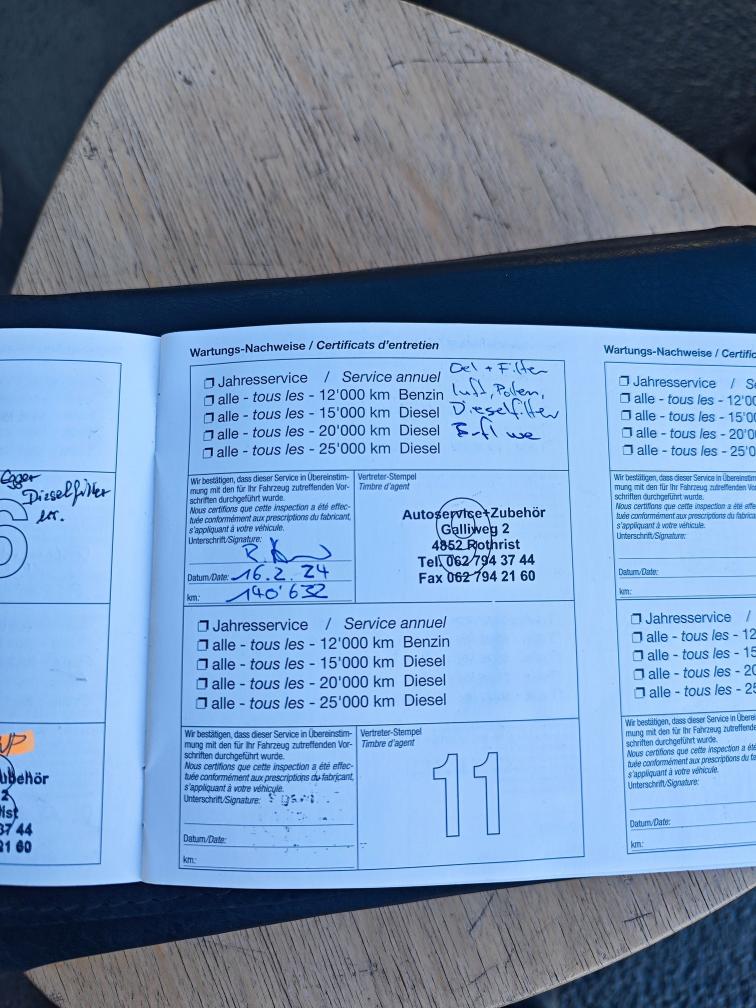 Egger
Dieselfilter
6
WP
ubehör
2
ist
37 44
21 60
Wartungs-Nachweise / Certificats d'entretien
Jahresservice / Service annuel
alle - tous les - 12'000 km Benzin
alle - tous les - 15'000 km Diesel
alle - tous les - 20'000 km Diesel
alle - tous les - 25'000 km Diesel
Oel + Filter
Luft, Pollen,
Dieselfilter
Wir bestätigen, dass dieser Service in Übereinstim-
mung mit den für Ihr Fahrzeug zutreffenden Vor-
schriften durchgeführt wurde.
Nous certifions que cette inspection a été effec-
tuée conformément aux prescriptions du fabricant,
s'appliquant à votre véhicule.
Unterschrift/Signature:
Datum/Date: 16.2.24
km: 140'632
Vertreter-Stempel
Timbre d'agent
Autoservice+Zubehör
Galliweg 2
4852 Rothrist
Tel. 062 794 37 44
Fax 062 794 21 60
Jahresservice / Service annuel
alle - tous les - 12'000 km Benzin
alle - tous les - 15'000 km Diesel
alle - tous les - 20'000 km Diesel
alle - tous les - 25'000 km Diesel
Wir bestätigen, dass dieser Service in Übereinstim-
mung mit den für Ihr Fahrzeug zutreffenden Vor-
schriften durchgeführt wurde.
Nous certifions que cette inspection a été effec-
tuée conformément aux prescriptions du fabricant,
s'appliquant à votre véhicule.
Unterschrift/Signature:
Datum/Date:
km:
Vertreter-Stempel
Timbre d'agent
11
Wartungs-Nachweise / Certific
Jahresservice / Se
alle - tous les - 12'00
alle - tous les - 15'00
alle - tous les - 20'00
alle - tous les - 25'0
Wir bestätigen, dass dieser Service in Übereinstim-
mung mit den für Ihr Fahrzeug zutreffenden Vor-
schriften durchgeführt wurde.
Nous certifions que cette inspection a été effec-
tuée conformément aux prescriptions du fabricant,
s'appliquant à votre véhicule.
Unterschrift/Signature:
Datum/Date:
km:
Jahresservice /
alle - tous les - 12
alle - tous les - 15
alle - tous les - 20
alle - tous les - 25
Wir bestätigen, dass dieser Service in Überei
mung mit den für Ihr Fahrzeug zutreffenden
schriften durchgeführt wurde.
Nous certifions que cette inspection a été e
tuée conformément aux prescriptions du fa
s'appliquant à votre véhicule.
Unterschrift/Signature:
Datum/Date:
km: